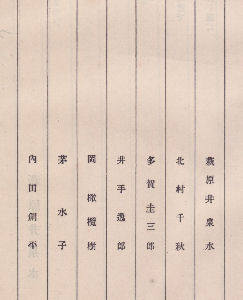 荻原井泉水
北村千秋
多賀圭三郎
井手逸郎
岡橄欖樹
茅水子
內田創平